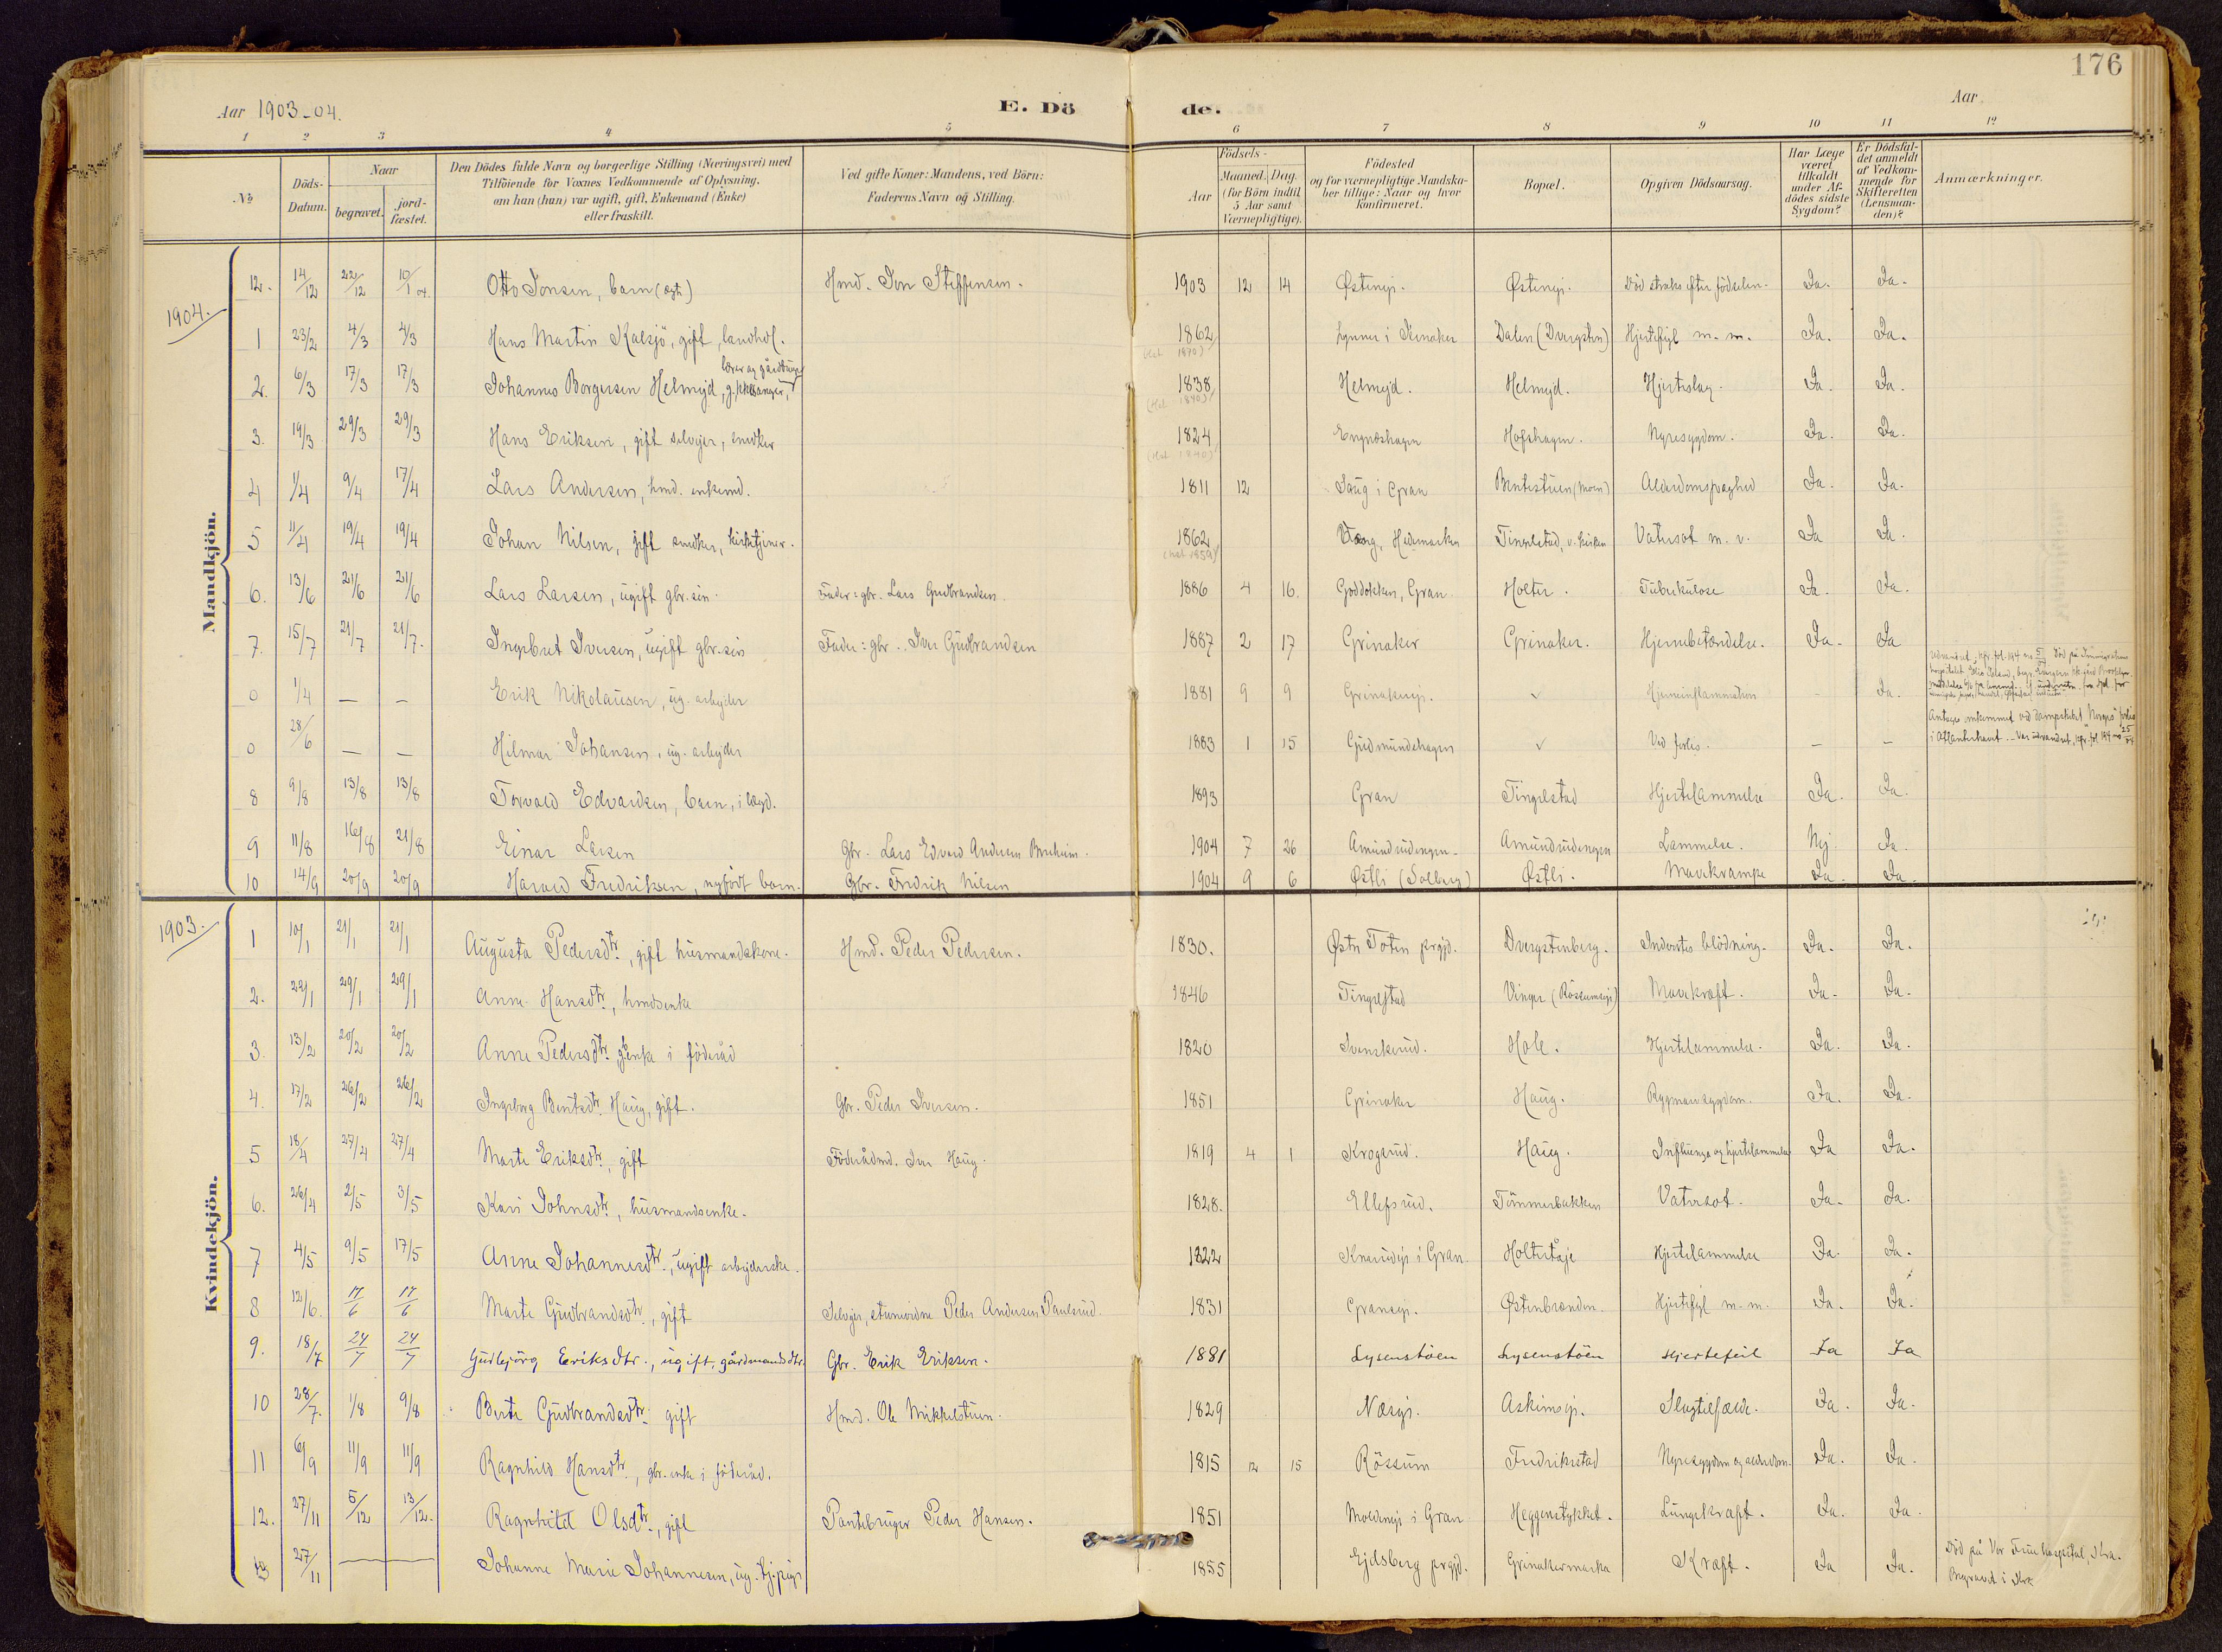 176
Aar 1903-04.
E. Dö
de.
Aar
1 2 3 4 5 6 7 8 9 10 11 12
No
Döds-Datum.
Naar
begravet.
jord-fæstet.
Den Dödes fulde Navn og borgerlige Stilling (Næringsvei) med
Tilföiende for Voxnes Vedkommende af Oplysning,
om han (hun) var ugift, gift, Enkemand (Enke)
eller fraskilt.
Ved gifte Koner: Mandens, ved Börn:
Faderens Navn og Stilling.
Födsels-
Aar
Maaned. Dag.
(for Börn indtil
5 Aar samt
Værnepligtige).
Födested
og for værnepligtige Mandska-
ber tillige: Naar og hvor
konfirmeret.
Bopæl.
Opgiven Dödsaarsag.
Har Læge
været
tilkaldt
under Af-
dödes sidste
Sygdom?
Er Dödsfal-
det anmeldt
af Vedkom-
mende for
Skifteretten
(Lensman-
den)?
Anmærkninger.
Mandkjön.
12. 14/12 22/12 10/1 04. Otto Jonsen, barn (ægte) Hmd. Jon Steffensen. 1903 12 14 Østengr. Østengr. Död straks efter födselen. Ja. Ja.
1904.
1 23/2 4/3 4/3 Hans Martin Kalsjö, gift, landhdl. 1862 Lynner i Jevnaker Dalen (Dvergsten) Hjertefeyl m. m. Ja. Ja.
2. 6/3 17/3 17/3 Johannes Borgersen Helmejd, g. kkesanger, lærer og gårdbruger 1838 Helmejd. Helmejd. Hjerteslag. Ja. Ja.
3. 19/3 29/3 29/3 Hans Eriksen, gift selvejer, snedker 1824 Engnæshagen Hofshagen. Nyresygdom. Ja. Ja.
4 1/4 9/4 17/4 Lars Andersen, hmd. enkemd. 1811 12 Haug i Gran Bentestuen (Moen) Alderdomssvaghed Ja. Ja.
5 11/4 19/4 19/4 Johan Nilsen, gift snedker, kirketjener. 1862 Vang, Hedemarken Tingelstad, v. kirken Vatersot m. v. Ja Ja.
6. 13/6 21/6 21/6 Lars Larsen, ugift gbr. sön. Fader: gbr. Lars Gudbrandsen. 1886 4 16. Goddokken, Gran. Holter. Tuberkulose Ja. Ja.
7. 15/7 21/7 21/7. Ingebret Iversen, ugift gbr. sön Fader: gbr. Iver Gudbrandsen 1887 2 17 Grinaker Grinaker. Hjernebetændelse. Ja. Ja
0 1/4 — — Erik Nikolausen, ug. arbejder 1881 9 9 Grinakerejr. ✓ Hjerneinflammation - Ja.
0 28/6 — — Hilmar Johansen, ug. arbejder 1883 1 15 Gudmundshagen ✓ Ved forlis. — — Antages omkommet ved dampskibet "Norges" forlis
i Atlanterhavet. - Var udvandret, kfr. fol. 194 no
8 9/8 13/8 13/8 Torvald Edvardsen, barn, i lægd. 1893 Gran Tingelstad Hjertelammelse Ja. Ja.
9 11/8 16/8 21/8 Einar Larsen Gbr. Lars Edvard Andersen Breheim. 1904 7 26 Amundrudengen. Amundrudengen Lammelse. Nej. Ja.
10 14/9 20/9 20/9 Harald Fredriksen, nyfödt barn. Gbr. Fredrik Nilsen 1904 9 6 Østli (Solberg) Østli. Mavekrampe Ja. Ja.
Kvindekjön.
1903.
1 10/1 21/1 21/1 Augusta Pedersdtr., gift husmandskone. Hmd. Peder Pedersen. 1830. Østre Toten prgjd. Dvergstenberg. Indvortes blödning. Ja. Ja.
2. 22/1 29/1 29/1 Anne Hansdtr., hmdsenke 1846 Tingelstad Vinger (Rössumejr) Mavekræft. Ja. Ja.
3. 13/2 20/2 20/2 Anne Pedersdtr. gbr. enke i föderåd 1820 Svenskerud. Hole. Hjertelammelse. Ja. Ja.
4. 17/2 26/2 26/2 Ingeborg Bentsdtr. Haug, gift. Gbr. Peder Iversen. 1851 Grinaker Haug. Rygmarvsygdom. Ja. Ja.
5 18/4 27/4 27/4 Marte Eriksdtr., gift Föderådmd. Iver Haug. 1819 4 1 Krogsrud. Haug. Influenza og hjertelammelse Ja Ja.
6. 26/4 2/5 3/5 Kari Johnsdtr., husmandsenke. 1828. Ellefsrud. Tömmerbakken Vatersot. Ja. Ja.
7 4/5 9/5 17/5 Anne Johannesdtr., ugift arbejderske. 1822 i Gran Holtertåje Hjertelammelse Ja. Ja.
8 12/6. 17/6 17/6 Marte Gudbrandsdtr., gift Selvejer, Peder Andersen Paulsrud. 1831 Gransejr. Østenbrænden. Hjertefeyl m. m. Ja. Ja.
9. 18/7 24/7 24/7 Gudbjörg Eriksdtr., ugift, gårdmandsdtr. Gbr. Erik Eriksen. 1881 Lysenstöen Lysenstöen Hjertefeil Ja Ja
10 28/7. 1/8 9/8 Berte Gudbrandsdtr. gift Hmd. Ole Mikkelstuen. 1829 Næsejr. Askimejr. Slagtilfælde. Ja. Ja.
11 6/9 11/9 11/9 Ragnhild Hansdtr., gbr. enke i föderåd. 1815 12 15 Rössum Fredrikstad Nyresygdom og alderdom. Ja. Ja.
12. 27/11 5/12 13/12. Ragnhild Olsdtr., gift Pantebruger Peder Hansen. 1851 Moldenejr i Gran Heggenstykket. Lungekræft. Ja. Ja.
13 27/11 — — Johanne Marie Johannesen, ug. tj. pige 1855 Ejdsberg prgjd. Grinakermarka Kræft. Ja Ja. Död på Vor Frue hospital, Kra.
Begravet i Kra.